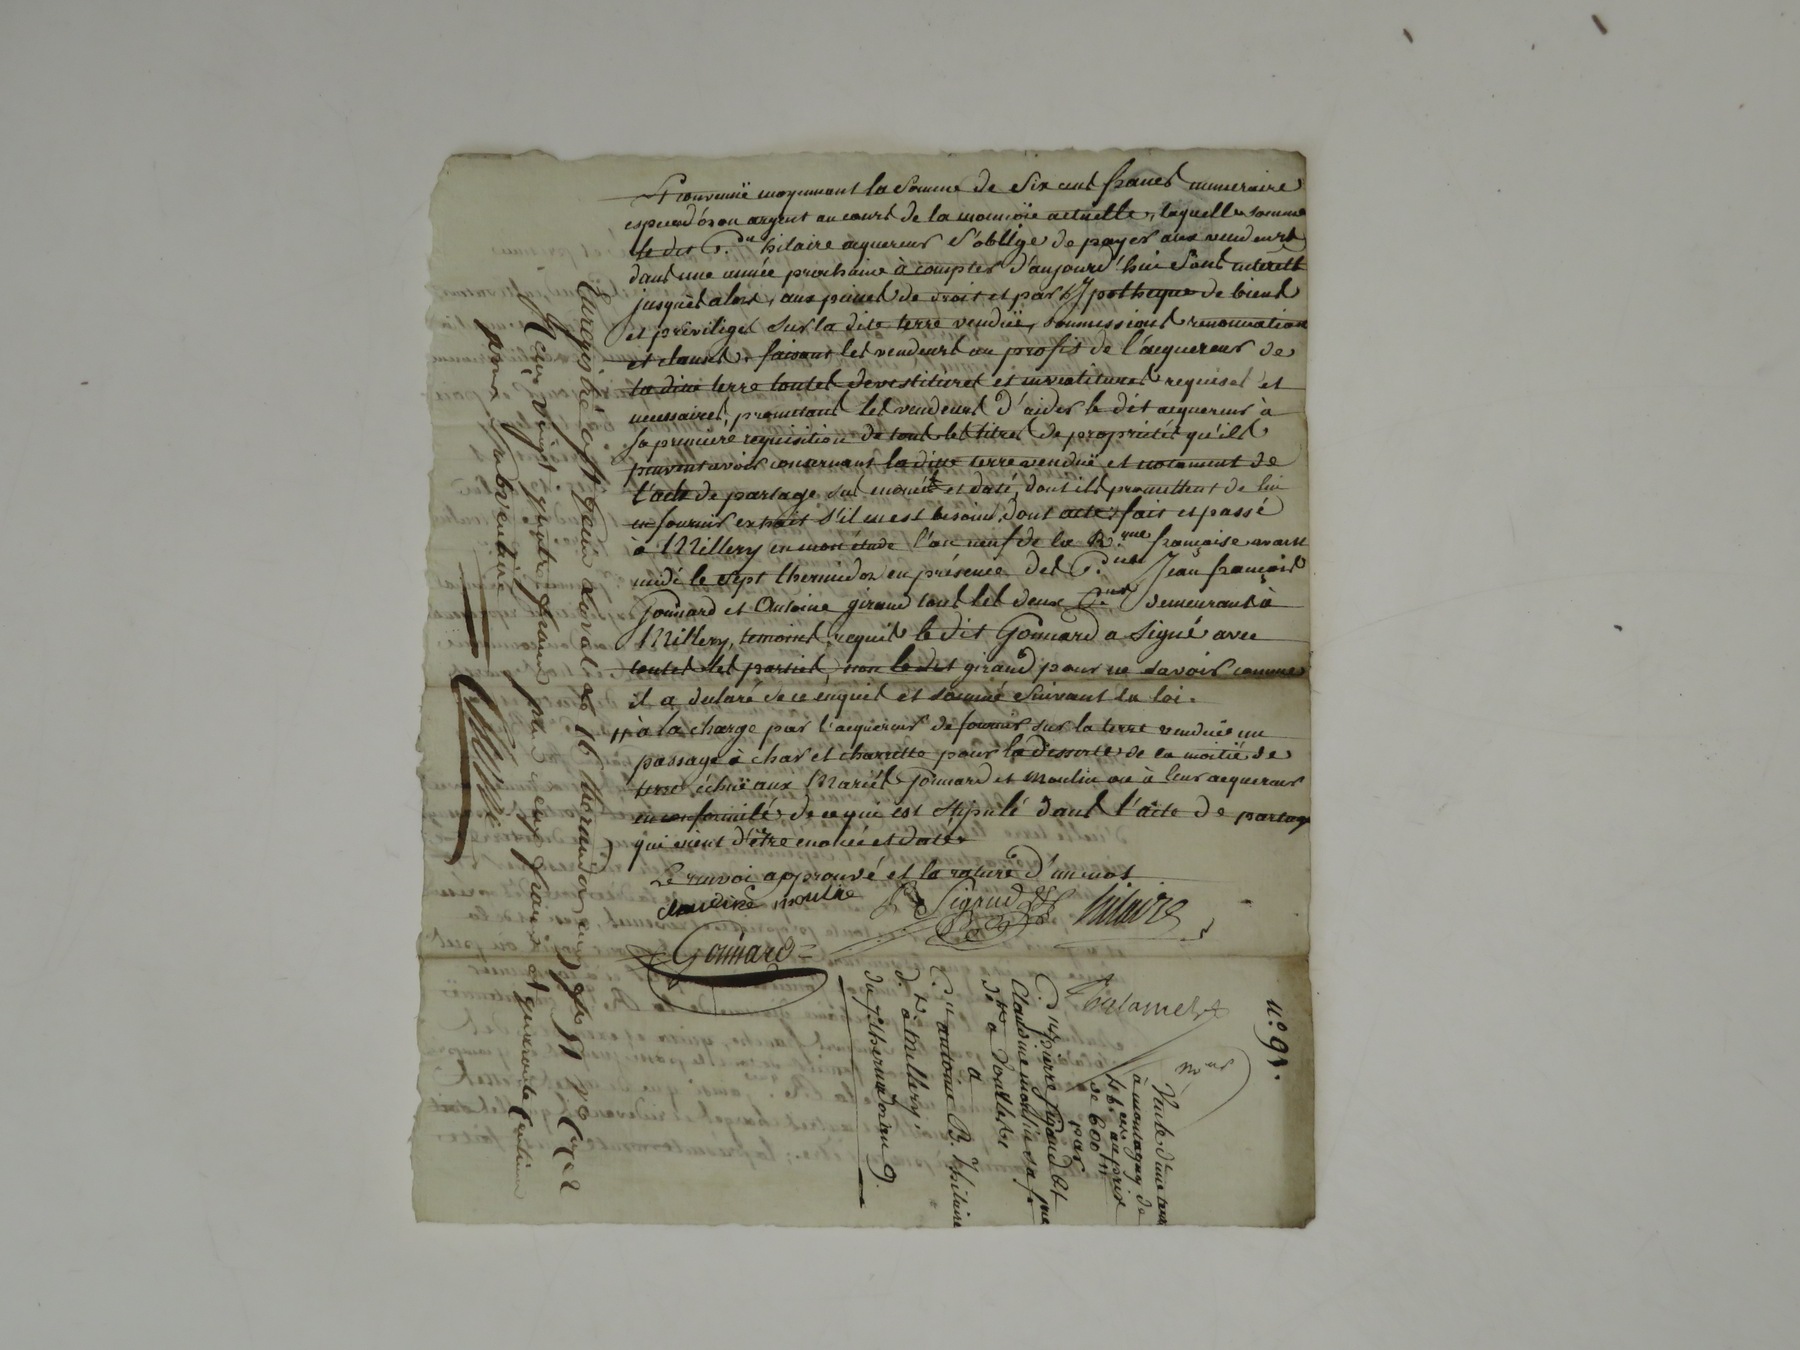 et convenuë moyennant la somme de Six cent francs numeraire
especes d'or ou argent au cours de la monnoïe actuelle, laquelle somme
le dit C.en hilaire acquereur s'oblige de payer aux vendeurs
dans une année prochaine à compter d'aujourd'hui sans interêts
jusques alors, aux peines de droit et par hypotheque de biens
et privilège sur la dite terre venduë, soumissions renonciation
et clauses. faisant les vendeurs au profit de l'acquereur de
la dite terre toutes devestitures et investitures requises et
necessaires, promettant les vendeurs d'aider le dit acquereur à
sa premiere requisition de tous les titres de propriétés qu'ils
peuvent avoir concernant la ditte terre venduë et notament de
l'acte de partage sus enoncé et daté, dont ils promettent de lui
en fournir extrait s'il en est besoin, dont acte, fait et passé
à Millery en mon étude l'an neuf de la R.que française avant
midi le sept thermidor en présence des C.ens Jean françois
Gonnard et Antoine giraud tous les deux demeurant à
Millery, temoins requis le dit Gonnard a signé avec
toutes les parties, non le dit giraud pour ne savoir comme
il a declaré de ce enquis et sommé suivant la loi.
à la charge par l'acquereur de fournir sur la terre venduë un
passage à char et charrette pour la desserte de la moitié de
terre échuë aux Mariés Gonnard et Moulin ou à leur acquereur
en conformité de ce qui est stipulé dans l'acte de partage
qui vient d'être enoncé et daté
Le renvoi approuvé et la rature d'un mot
claudine moulin Sigaud hilaire
Gonnard
Enregistré à le 16 thermidor an 9
Reçu vingt quatre francs et quarante Centimes
pour Subvention
n.o 95.
Vente d'une terre
à montagny de
au prix
de 600 fr
par
C.en pierre Sigaud et
Claudine moulin sa f.me
a
C.en antoine B. hilaire
d.t à Millery
du 7 thermidor an 9.